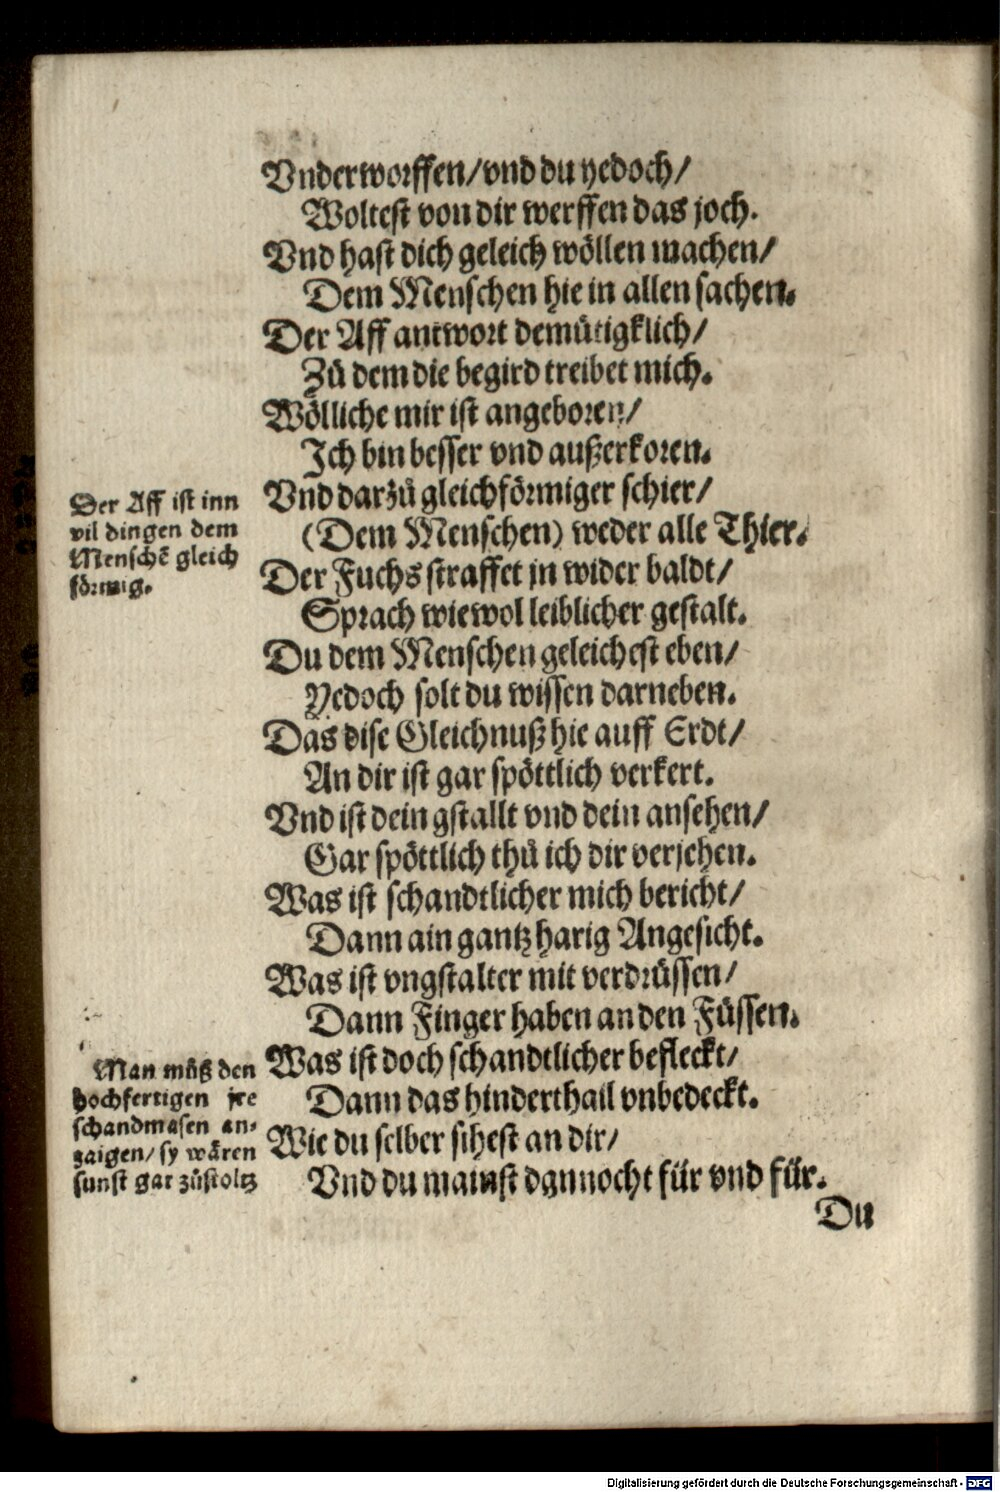 Vnderworffen/vnd du yedoch/
Woltest von dir werffen das joch.
Vnd hast dich geleich wöllen machen/
Dem Menschen hie in allen sachen.
Der Aff antwort demütigklich/
Zů dem die begird treibet mich.
Wölliche mir ist angeboren/
Ich bin besser vnd außerkoren.
Vnd darzů gleichförmiger schier/
(Dem Menschen) weder alle Thier.
Der Aff ist inn
vil dingen dem
Menschē gleich
förmig.
Der Fuchs straffet jn wider baldt/
Sprach wiewol leiblicher gestalt.
Du dem Menschen geleichest eben/
Yedoch solt du wissen darneben.
Das dise Gleichnuß hie auff Erdt/
An dir ist gar spöttlich verkert.
Vnd ist dein gstallt vnd dein ansehen/
Gar spöttlich thů ich dir verjehen.
Was ist schandtlicher mich bericht/
Dann ain gantz harig Angesicht.
Was ist vngstalter mit verdrüssen/
Dann Finger haben an den Füssen.
Was ist doch schandtlicher befleckt/
Dann das hinderthail vnbedeckt.
Wie du selber sihest an dir/
Vnd du mainst dannocht für vnd für.
Man můß den
hochfertigen jre
schandmasen an-
zaigen/sy wären
sunst gar zůstoltz
Du
Digitalisierung gefördert durch die Deutsche Forschungsgemeinschaft - DFG